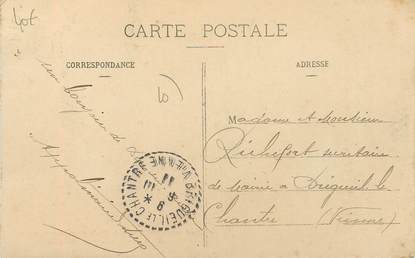 Lot
CARTE POSTALE
CORRESPONDANCE
ADRESSE
un bonjour de
BRIGUEIL LE CHANTRE VIENNE
Madame et Monsieur
Richefort secrétaire
de Mairie a Brigueil le
Chantre (Vienne)